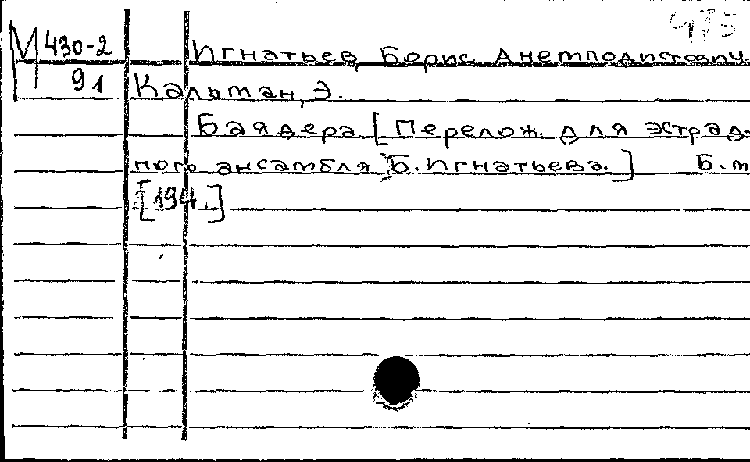 475
М 430-2
91
Игнатьев, Борис Анемподистович
Кальман, Э.
Баядера [Перелож. для эстрад-
ного ансамбля Б. Игнатьева.] Б.м
[194.]